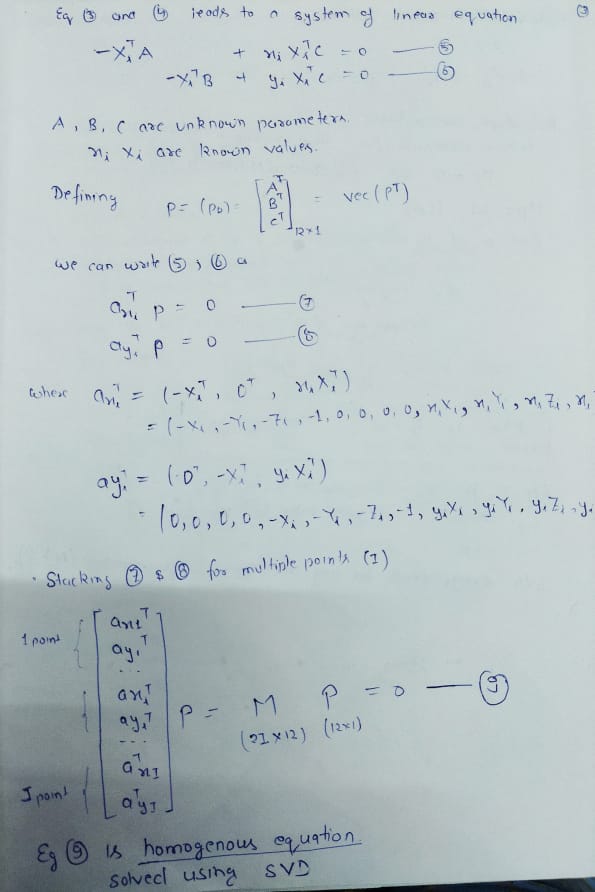 Eq ③ and ④ leads to a system of linear equation
-Xᵢᵀ A + xᵢ Xᵢᵀ C = 0 — ⑤
-Xᵢᵀ B + yᵢ Xᵢᵀ C = 0 — ⑥
A, B, C are unknown parameters.
xᵢ Xᵢ are known values.
Defining P = (Pₚ) = [Aᵀ Bᵀ Cᵀ]₁₂ₓ₁ = vec(Pᵀ)
we can write ⑤ ; ⑥ a
aₓᵢᵀ p = 0 — ⑦
ayᵢᵀ p = 0 — ⑧
where aₓᵢᵀ = (-Xᵢᵀ, 0ᵀ, xᵢ Xᵢᵀ)
= (-Xᵢ, -Yᵢ, -Zᵢ, -1, 0, 0, 0, 0, xᵢXᵢ, xᵢYᵢ, xᵢZᵢ, xᵢ
ayᵢᵀ = (0ᵀ, -Xᵢᵀ, yᵢ Xᵢᵀ)
= (0, 0, 0, 0, -Xᵢ, -Yᵢ, -Zᵢ, -1, yᵢXᵢ, yᵢYᵢ, yᵢZᵢ, yᵢ
• Stacking ⑦ & ⑧ for multiple points (I)
1 point
ax₁ᵀ
ay₁ᵀ
...
axᵢᵀ
ayᵢᵀ
p = M P = 0 — ⑨
(2I x 12) (12x1)
...
aᵀxI
I point
aᵀyI
Eq ⑨ is homogenous equation
solved using SVD